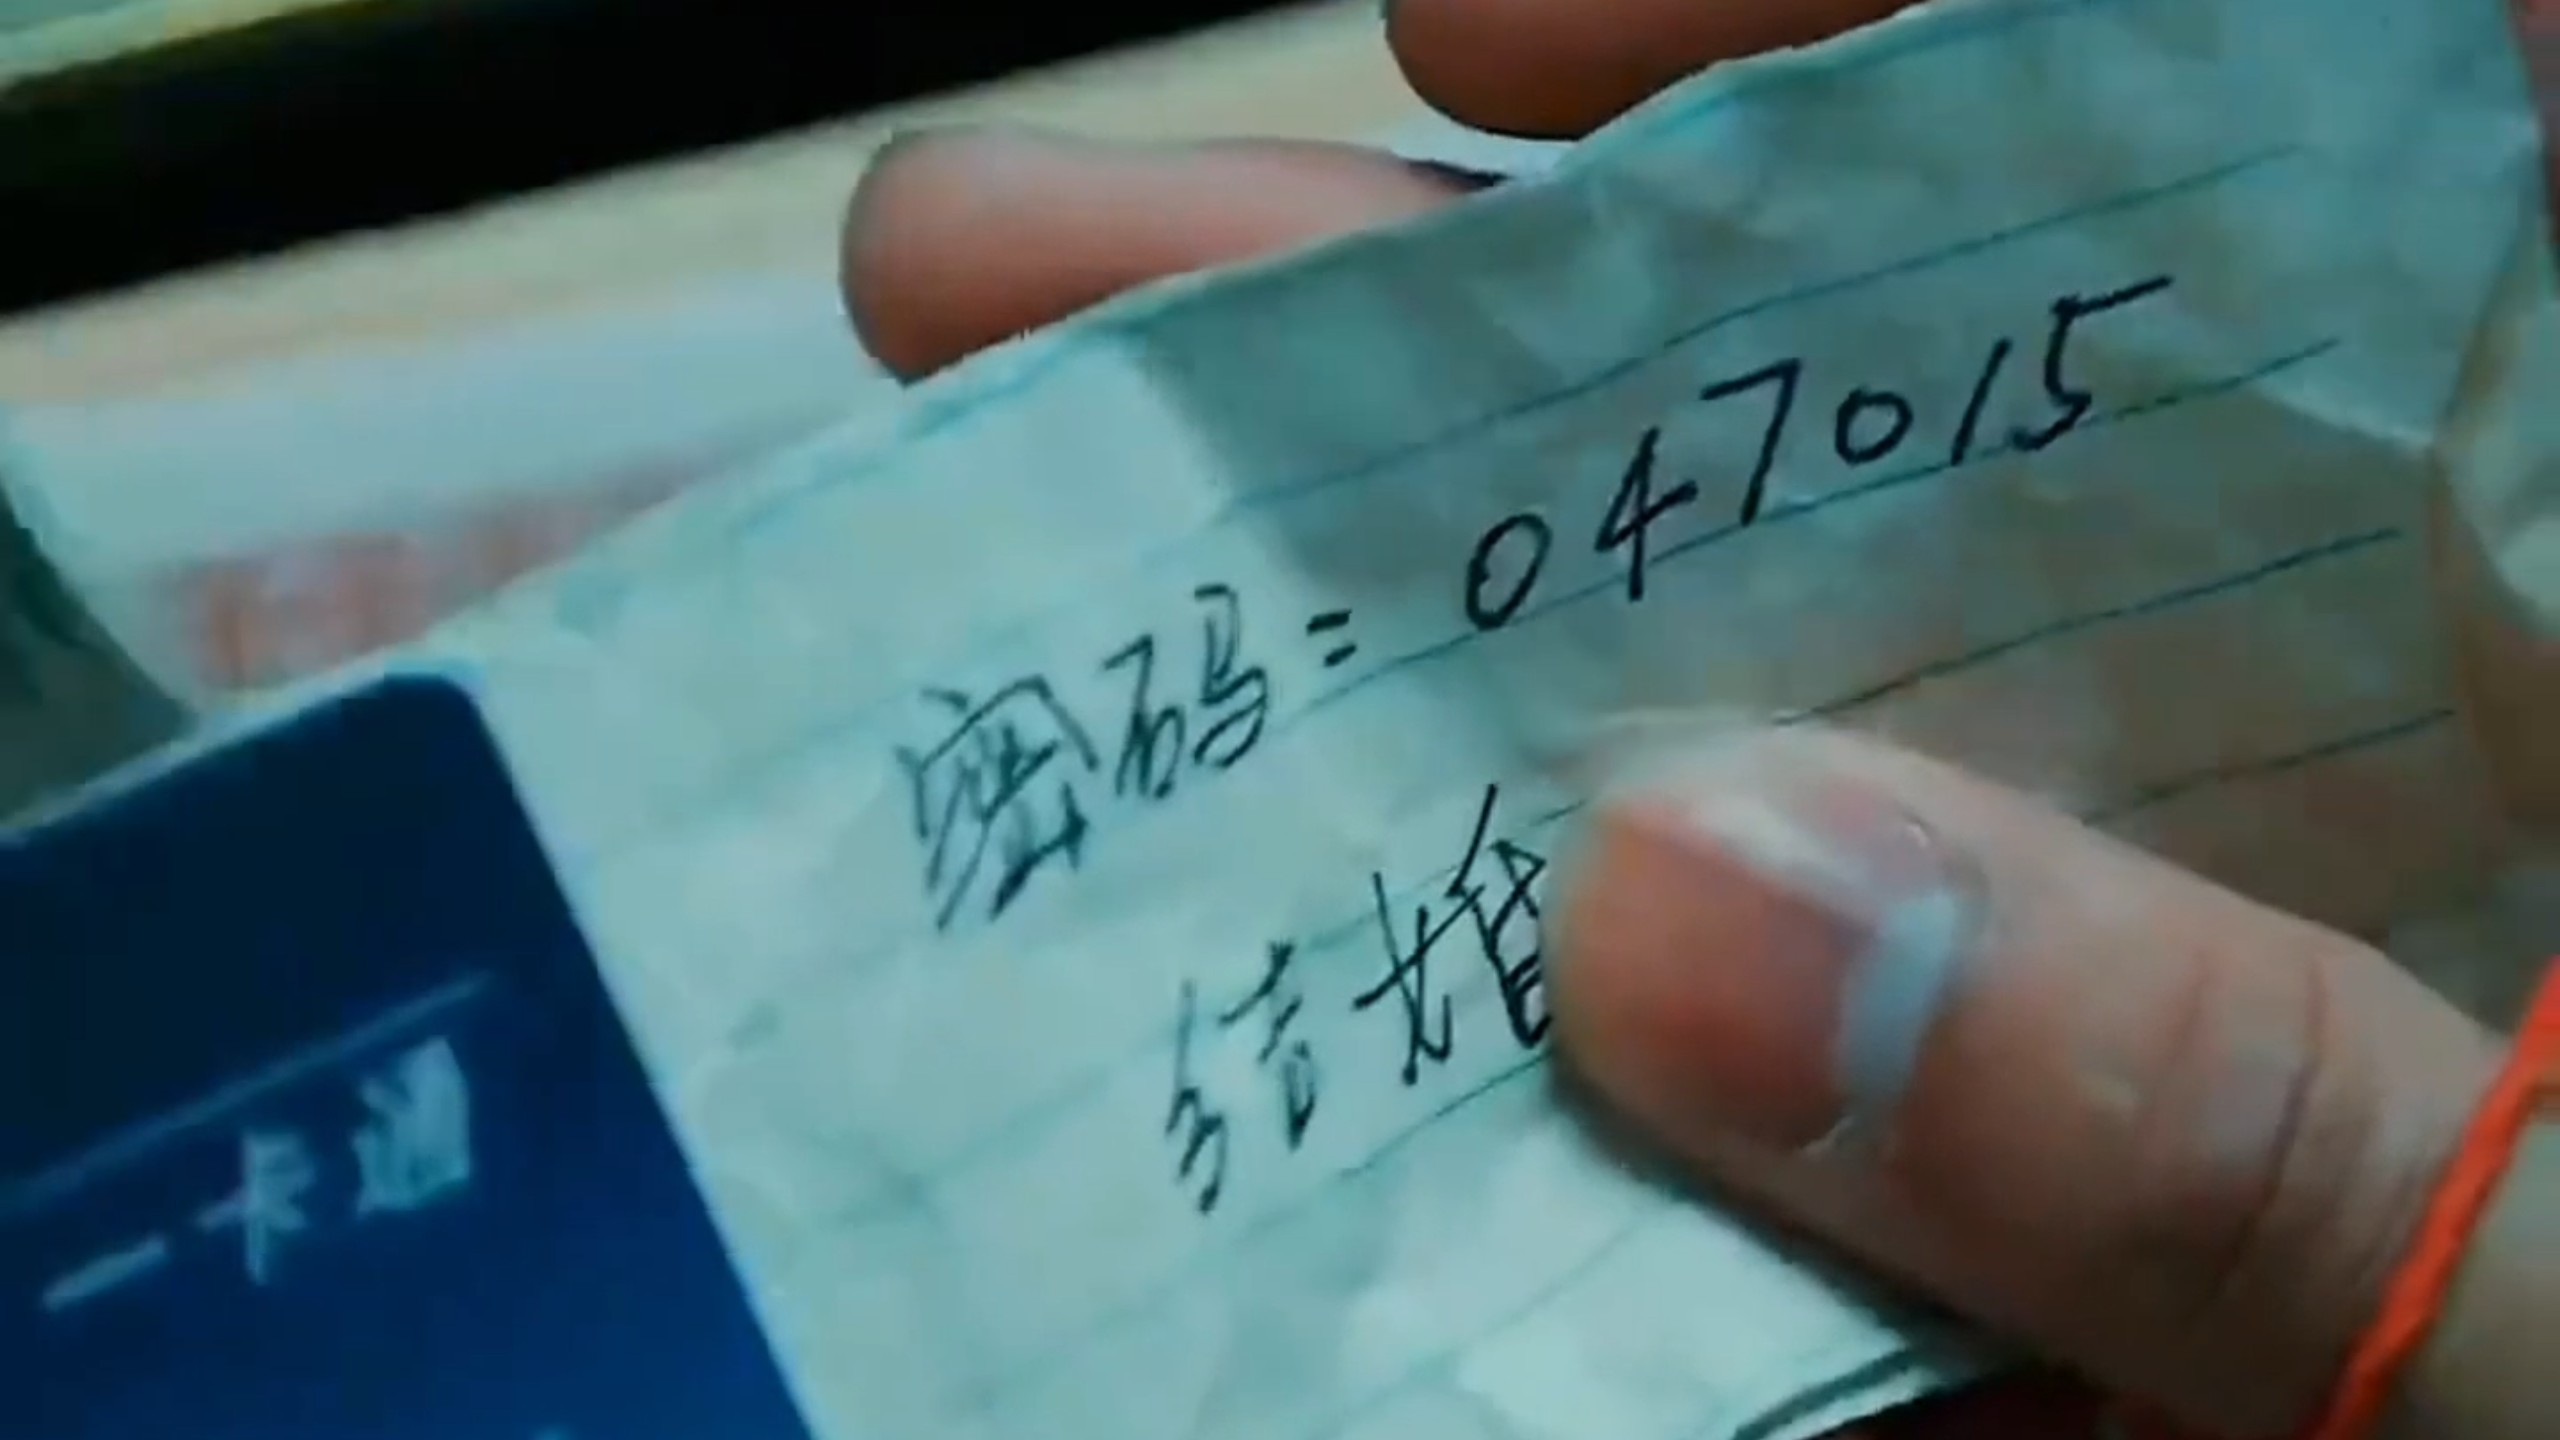 密码=047015
结婚
一卡通